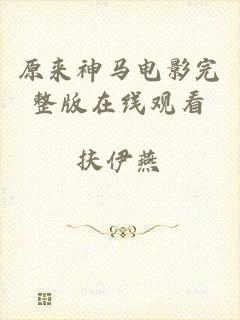 原来神马电影完
整版在线观看
扶伊燕